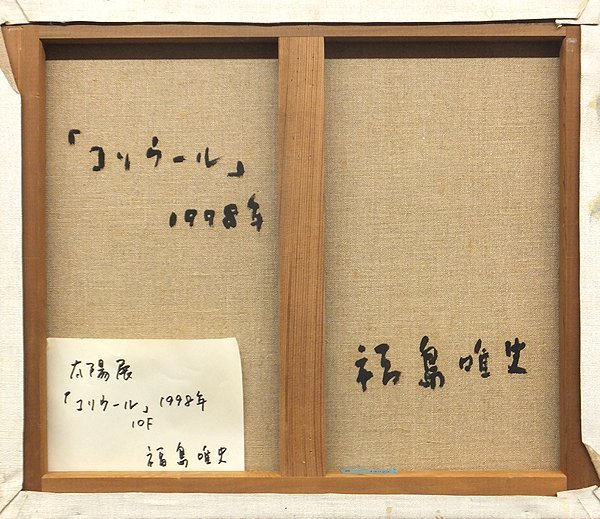 「コリウール」
1998年
福島唯史
太陽展
「コリウール」1998年
10F
福島唯史